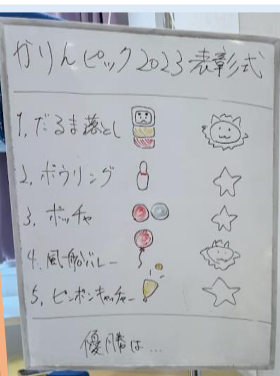 かりんピック2023表彰式
1,だるま落とし
2,ボウリング
3,ボッチャ
4,風船バレー
5,ピンポンキャッチャー
優勝は...